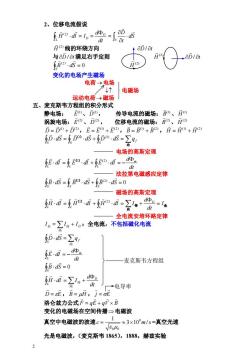 2、位移电流假设
∮H⁽²⁾·dl = I_D = dΦ_D/dt = ∫∂D/∂t·dS
H⁽²⁾线的环绕方向
与∂D/∂t满足右手定则
∂D/∂t
H⁽²⁾
∮B⁽²⁾·dS = 0
变化的电场产生磁场
电荷→电场
电磁场
运动电荷→磁场
五、麦克斯韦方程组的积分形式
静电场： E⁽¹⁾、D⁽¹⁾， 传导电流的磁场：B⁽¹⁾、H⁽¹⁾
涡旋电场：E⁽²⁾、D⁽²⁾， 位移电流的磁场：B⁽²⁾、H⁽²⁾
D = D⁽¹⁾ + D⁽²⁾，E = E⁽¹⁾ + E⁽²⁾，B = B⁽¹⁾ + B⁽²⁾，H = H⁽¹⁾ + H⁽²⁾
∮D·dS = ∮D⁽¹⁾·dS + ∮D⁽²⁾·dS = ∑q
电场的高斯定理
∮E·dl = ∮E⁽¹⁾·dl + ∮E⁽²⁾·dl = -dΦ_m/dt
法拉第电磁感应定律
∮B·dS = ∮B⁽¹⁾·dS + ∮B⁽²⁾·dS = 0
磁场的高斯定理
∮H·dl = ∮H⁽¹⁾·dl + ∮H⁽²⁾·dl = ∑I + dΦ_D/dt = I全
全电流安培环路定律
全电流，不包括磁化电流
∮D·dS = ∑q
∮E·dl = -dΦ_m/dt
麦克斯韦方程组
∮B·dS = 0
∮H·dl = ∑I + dΦ_D/dt
电导率
D = εE，B = μH，j = σE
洛仑兹力公式F = qE + qV × B
变化的电磁场在空间传播⇒电磁波
真空中电磁波的波速c = 1/√(ε₀μ₀) = 3×10⁸m/s=真空光速
光是电磁波，（麦克斯韦 1865），1888，赫兹实验
2